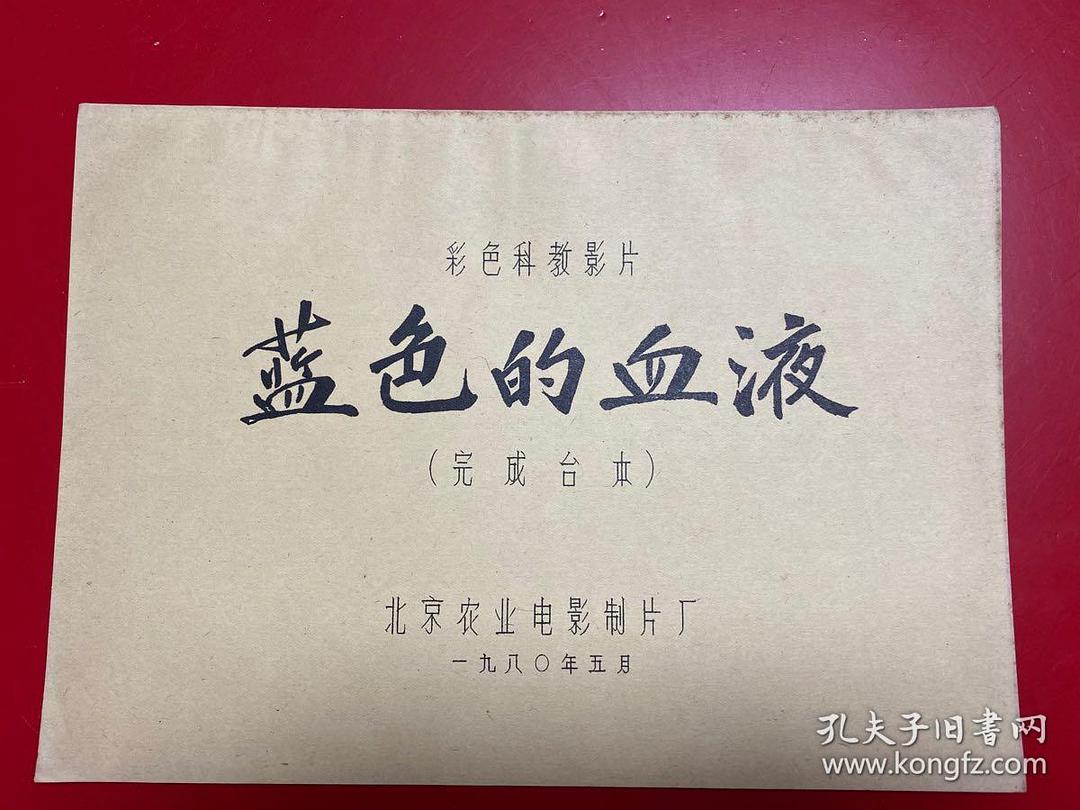 彩色科教影片
蓝色的血液
（完成台本）
北京农业电影制片厂
一九八〇年五月
孔夫子旧书网
www.kongfz.com